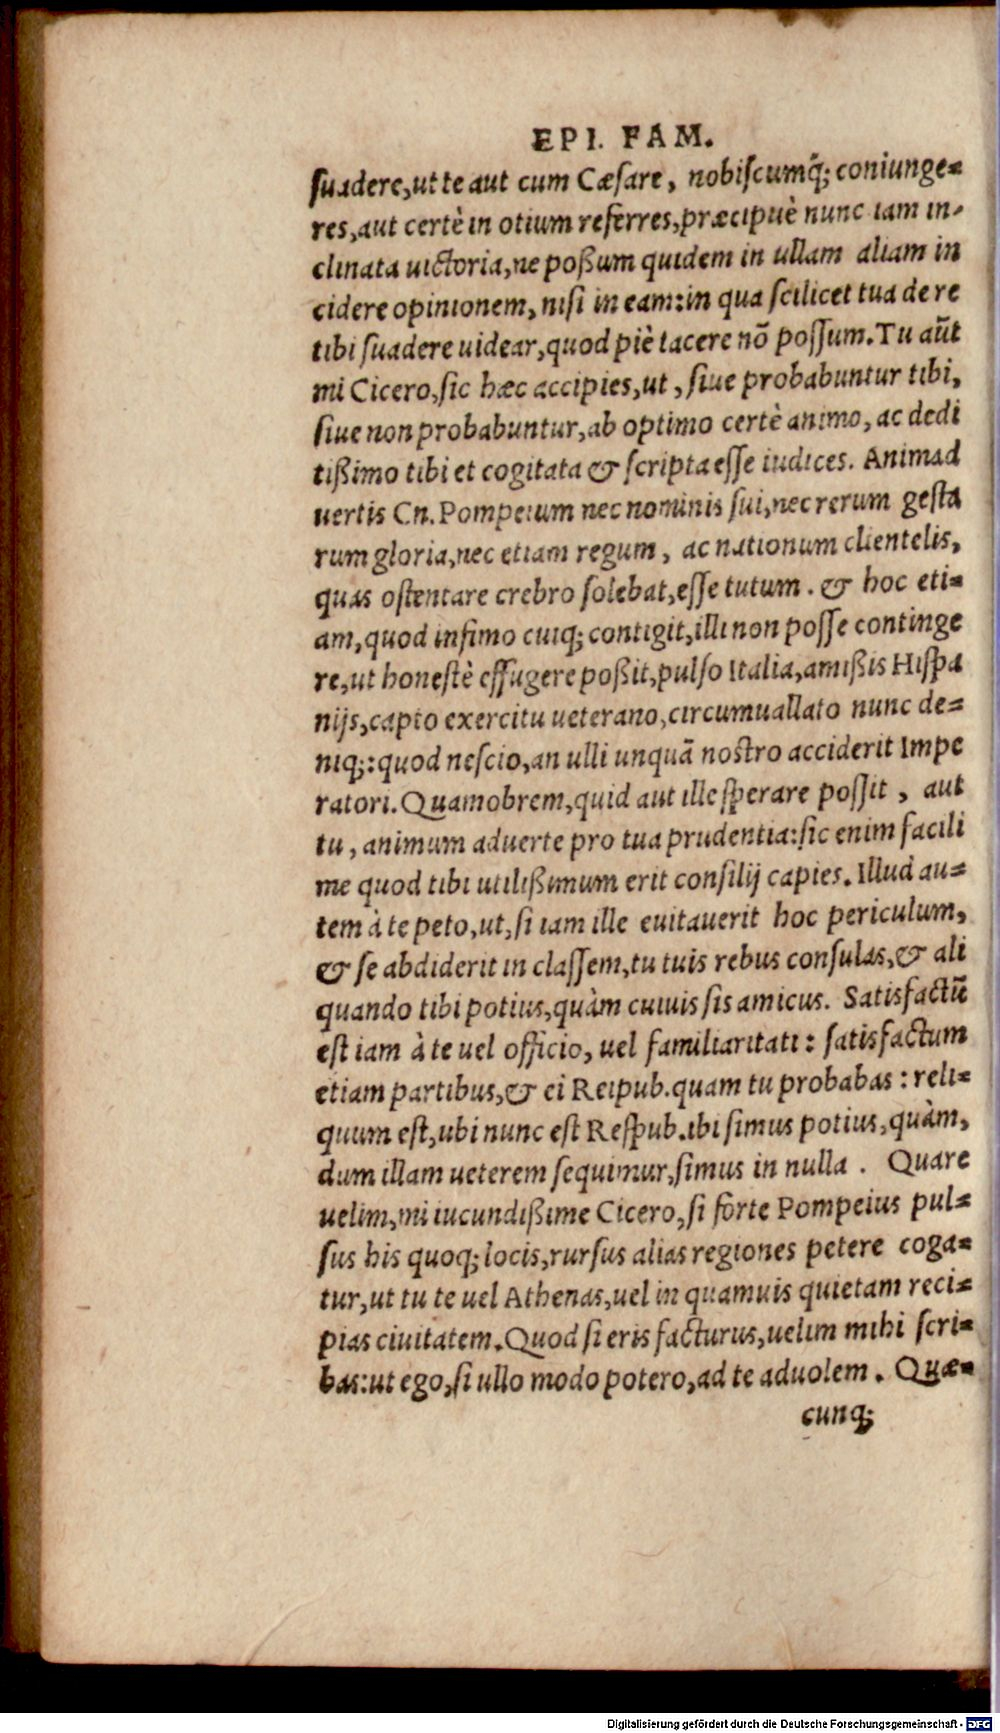 EPI. FAM.
suadere, ut te aut cum Cæsare, nobiscumq́; coniunge=
res, aut certè in otium referres, præcipuè nunc iam in-
clinata uictoria, ne poßum quidem in ullam aliam in
cidere opinionem, nisi in eam: in qua scilicet tua de re
tibi suadere uidear, quod piè tacere nõ possum. Tu aũt
mi Cicero, sic hæc accipies, ut, siue probabuntur tibi,
siue non probabuntur, ab optimo certè animo, ac dedi
tißimo tibi et cogitata & scripta esse iudices. Animad
uertis Cn. Pompeium nec nominis sui, nec rerum gesta
rum gloria, nec etiam regum, ac nationum clientelis,
quas ostentare crebro solebat, esse tutum. & hoc eti=
am, quod infimo cuiq; contigit, illi non posse continge
re, ut honestè effugere poßit, pulso Italia, amißis Hispa
nijs, capto exercitu ueterano, circumuallato nunc de=
niq;: quod nescio, an ulli unquã nostro acciderit Impe
ratori. Quamobrem, quid aut ille sperare possit, aut
tu, animum aduerte pro tua prudentia: sic enim facili
me quod tibi utilißimum erit consilij capies. Illud au=
tem à te peto, ut, si iam ille euitauerit hoc periculum,
& se abdiderit in classem, tu tuis rebus consulas, & ali
quando tibi potius, quàm cuiuis sis amicus. Satisfactũ
est iam à te uel officio, uel familiaritati: satisfactum
etiam partibus, & ei Reipub. quam tu probabas: reli=
quum est, ubi nunc est Respub. ibi simus potius, quàm,
dum illam ueterem sequimur, simus in nulla. Quare
uelim, mi iucundißime Cicero, si forte Pompeius pul=
sus his quoq; locis, rursus alias regiones petere coga=
tur, ut tu te uel Athenas, uel in quamuis quietam reci=
pias ciuitatem. Quod si eris facturus, uelim mihi scri=
bas: ut ego, si ullo modo potero, ad te aduolem. Quæ=
cunq;
Digitalisierung gefördert durch die Deutsche Forschungsgemeinschaft - DFG